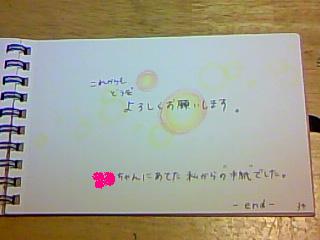 これからも
どうぞ
よろしくお願いします。
ちゃんにあてた 私からの"手紙"でした。
- end -